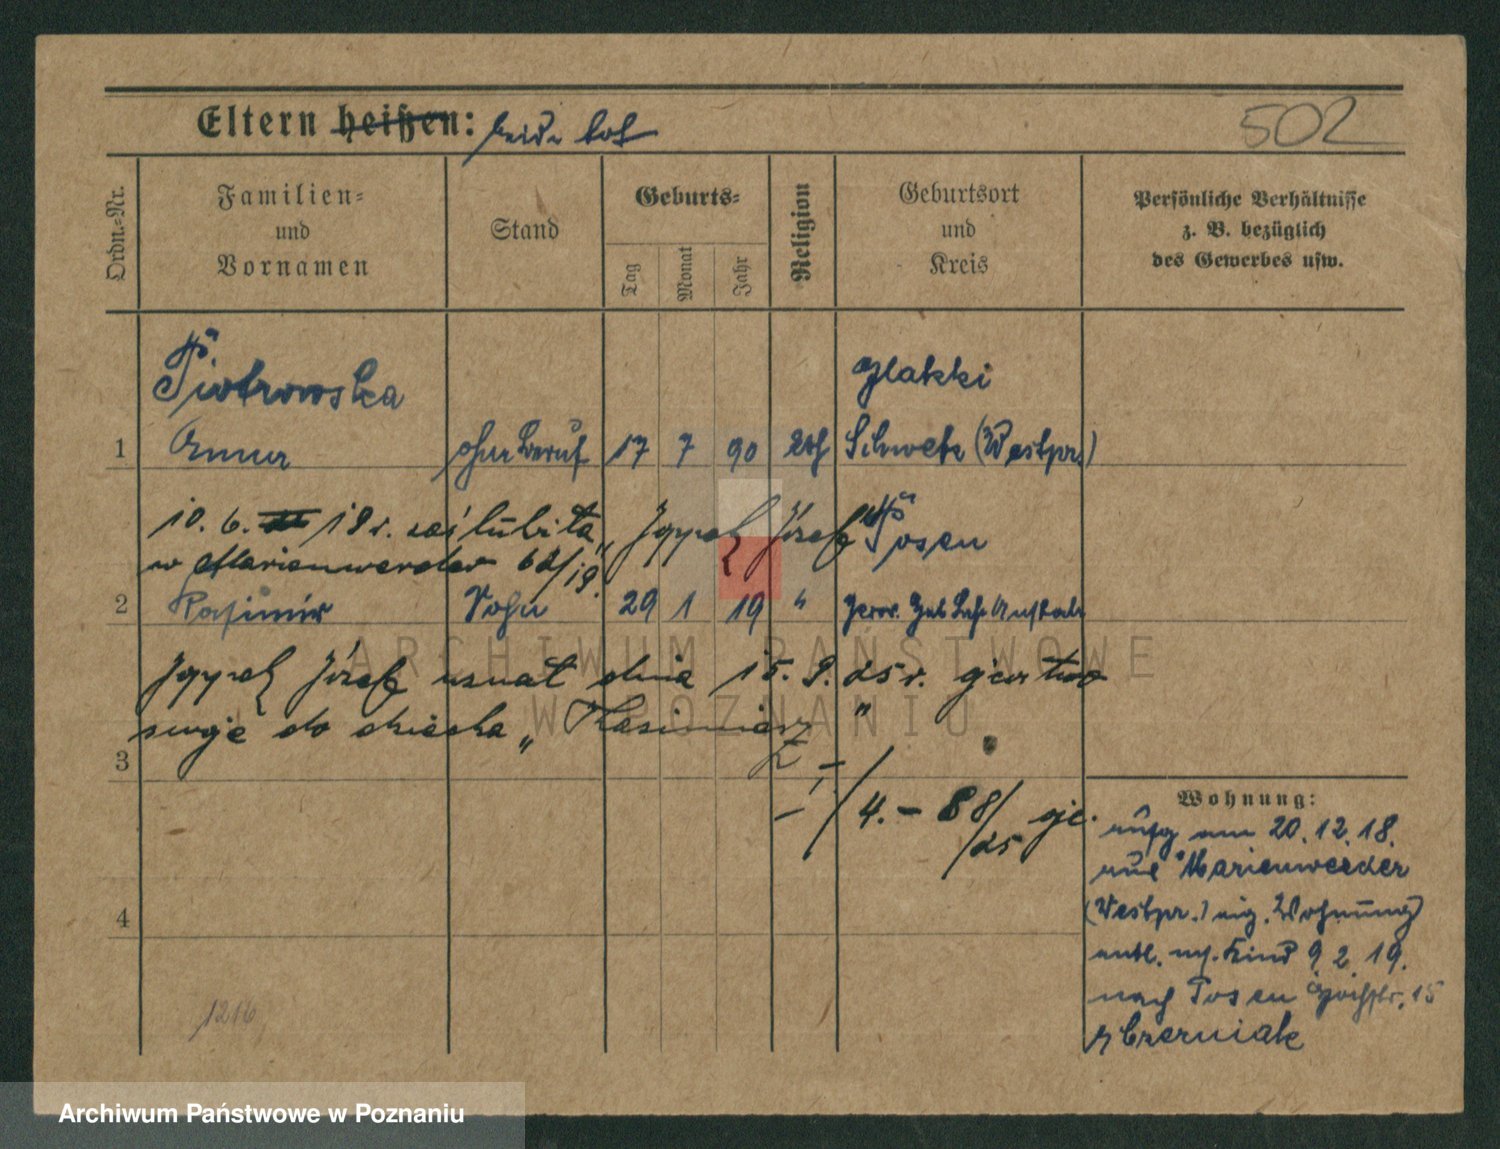 Eltern heißen: beide tot
502
Ordn.-Nr.
Familien-
und
Vornamen
Stand
Geburts-
Tag
Monat
Jahr
Religion
Geburtsort
und
Kreis
Persönliche Verhältnisse
z. B. bezüglich
des Gewerbes usw.
Piotrowska
1 Anna ohne Beruf 17 7 90 kth Schwetz (Westpr.)
10. 6. 18 r. zaślubiła „ Józef
w Marienwerder
Posen
2 Kasimir Sohn 29 1 19 "
Józef uznał dnia 15. 9. 25 r.
swoje do dziecka „ Kasimierz "
3
4. - 88/25
Wohnung:
aufg am 20. 12. 18.
aus Marienwerder
(Westpr.) eig. Wohnung
entl. m. Kind 9. 2. 19.
nach Posen 15
b Czerniak
4
1216
ARCHIWUM PAŃSTWOWE
W POZNANIU
Archiwum Państwowe w Poznaniu